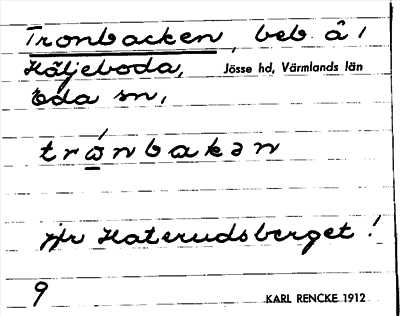 Tronbacken, beb. å /
Häljeboda, Jösse hd, Värmlands län
Eda sn,
trώnbakən
jfr Haterudsberget!
9 KARL RENCKE 1912